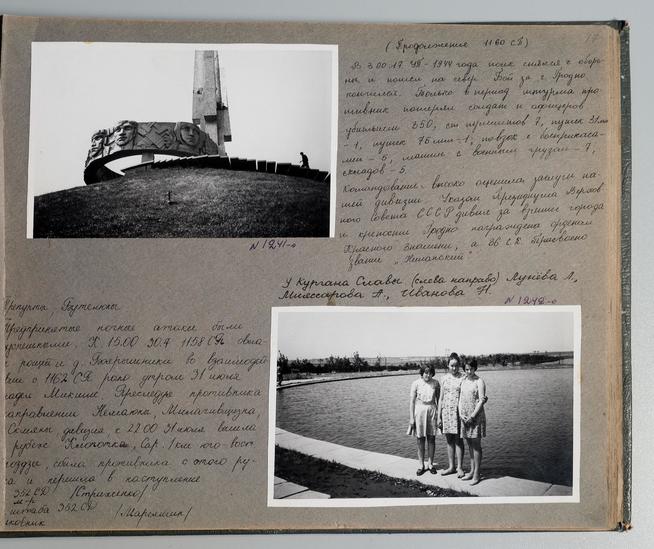 (Продолжение 1160 СП)
17
В 3.00 17 VII-1944 года полк снялся с оборо-
ны и пошел на север. Бой за г. Гродно
кончился. Только в период штурма про-
тивник потерял солдат и офицеров
убитыми 350, ст. пулеметов 7, пушек 37 мм
-1, пушек 75 мм-1, повозок с боеприпаса-
ми - 5, машин с военным грузом - 7,
складов - 5.
Командование высоко оценило заслуги на-
шей дивизии. Указом Президиума Верхов
ного Совета СССР дивиз за взятие города
и крепости Гродно награждена орденом
Красного знамени, а СП присвоено
звание "Неманский"
N 1241-о
У Кургана Славы (слева направо) Лунёва Л.,
Миассарова А., Иванова Н.
N 1242-о
Предпринятые ночные атаки были
успешными. К 15.00 30.4 1158 СП
рощи и д. во взаимодей
вии с 1162 СП рано утром 31 июля
Преследуя противника
направлении
дивизия к 22.00 31 июля вышла
рубеж Сар. 1 км юго-вост
сбила противника с этого ру-
а и перешла в наступление
352 СД /Стриженко/
м-р
штаба 352 СД
ковник